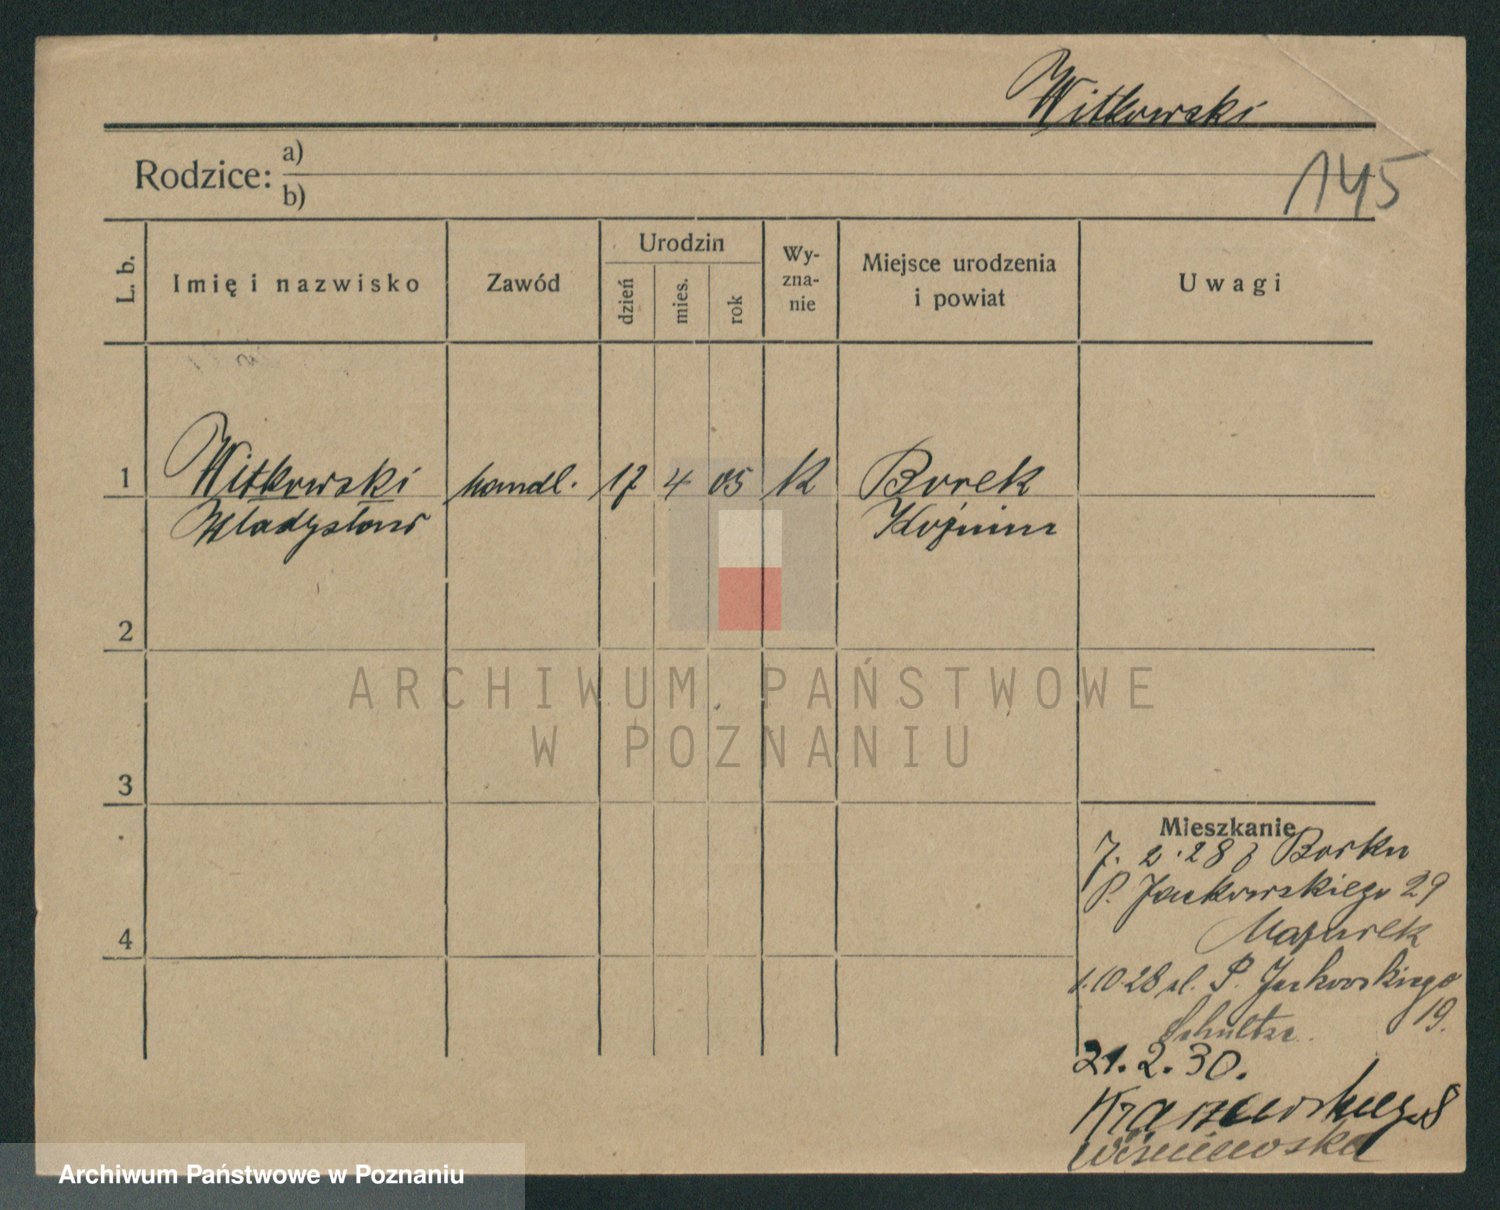 Witkowski
145
Rodzice: a)
b)
L. b.
Imię i nazwisko
Zawód
Urodzin
dzień
mies.
rok
Wy-
zna-
nie
Miejsce urodzenia
i powiat
Uwagi
1 Witkowski handl. 17 4 05 K Borek
Władysław Koźmin
2
3
4
ARCHIWUM PAŃSTWOWE
W POZNANIU
Mieszkanie
7. 2. 28 z Borku
P. Jackowskiego 29
Mazurek
1.10.28 ul. P. Jackowskiego
19.
Schultze.
21. 2. 30.
Kraszewskiego 8
Wiśniewska
Archiwum Państwowe w Poznaniu